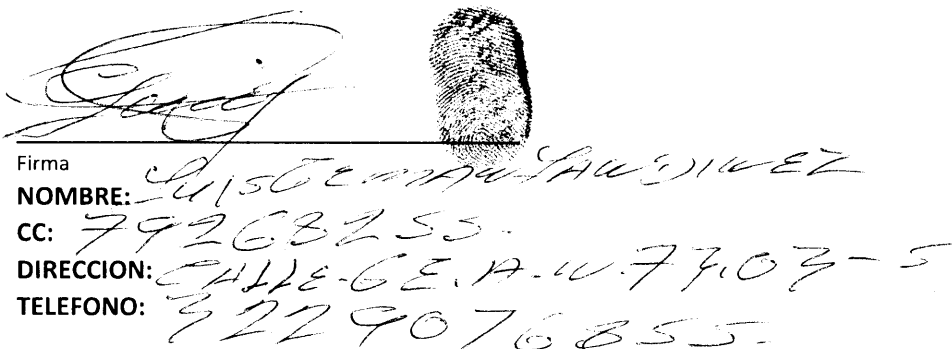 Firma
NOMBRE: LUIS GERMAN
CC: 79268255.
DIRECCION: CALLE-6E.A-N.73,03-5
TELEFONO: 3229076855.